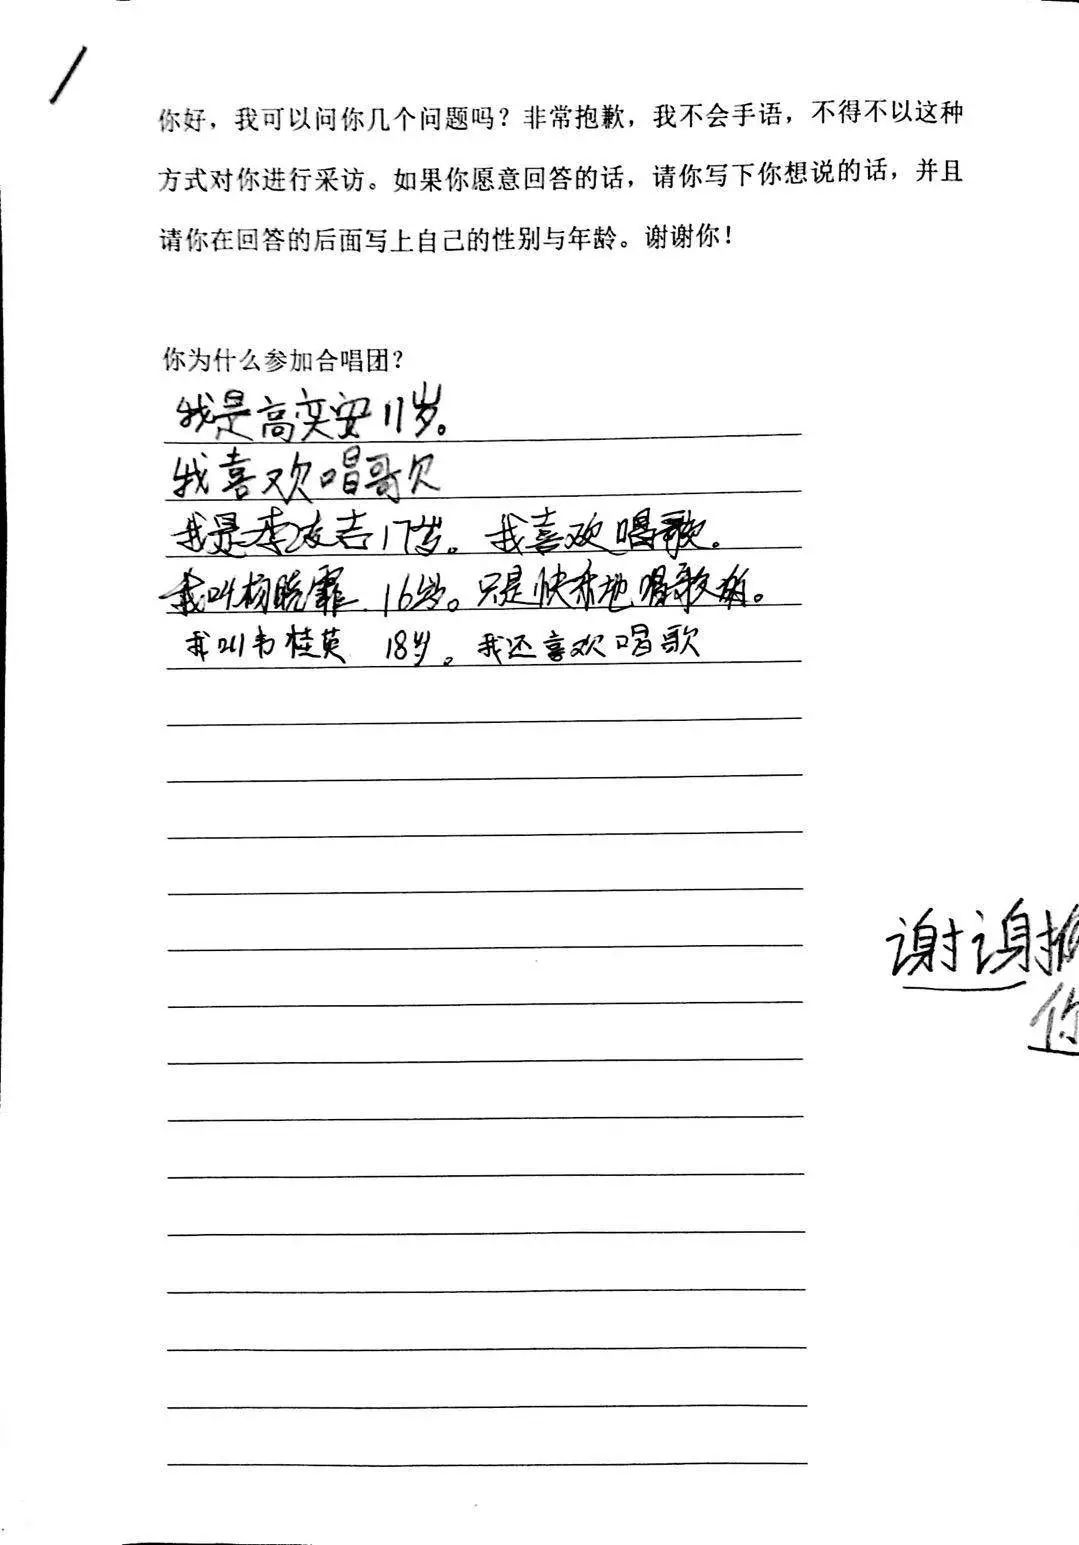 你好，我可以问你几个问题吗？非常抱歉，我不会手语，不得不以这种
方式对你进行采访。如果你愿意回答的话，请你写下你想说的话，并且
请你在回答的后面写上自己的性别与年龄。谢谢你！
你为什么参加合唱团？
我是高奕安11岁。
我喜欢唱哥欠
我是李友吉17岁。我喜欢唱歌.
我叫杨晓霏.16岁。只是快乐地唱歌
我叫韦桂英 18岁。我还喜欢唱歌
谢谢
你